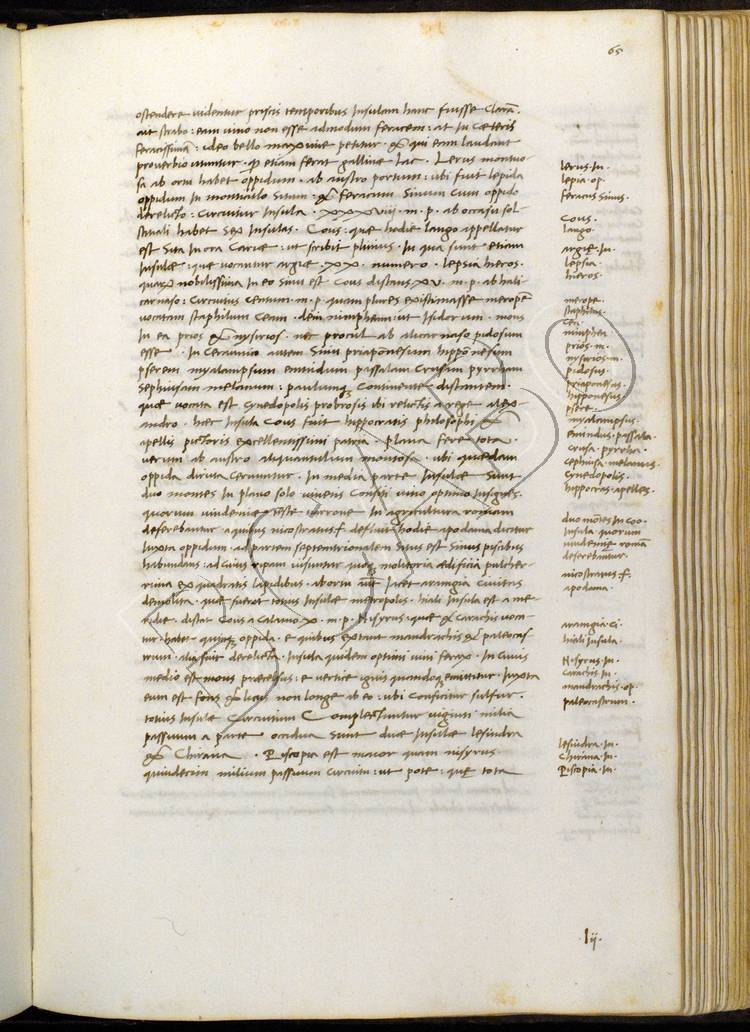 65
ostendere uidentur priscis temporibus Insulam hanc fuisse Clarã.
ait strabo: eam uino non esse admodum feracem: at In Cæteris
feracissimã: ideo bello maxime petitur. & qui eam laudant
prouerbio utuntur. ꝙ etiam ferat gallinæ lac. Lerus montuo
sa ab ortu habet oppidum. ab austro portum: ubi fuit lepida
oppidum In monticulo situm. & feracum Sinum Cum oppido
derelicto: Circuitur Insula. xxxviij. m. p. ab occasu sol
stitiali habet sex Insulas. Cous: quæ hodie lango appellatur
est Sita In ora Cariæ: ut scribit plinius. In qua sunt etiam
Insulæ: quæ uocantur argiæ. xx. numero. lepsia hieros.
quarũ nobilissima In eo sinu est Cous distans xv. m. p. ab hali
carnaso: Circuitus Centum. m. p. quam plures existimasse meropẽ
uocatam staphilum Ceam. dein nimpheam: ut Isidorum. mons
In ea prios & nysirios. nec procul ab alicarnaso pidosum
esse. In Ceramio autem Sinu priaponesum hipponesum
pserem myalampsum emtidum passalam Crusam pyrrham
sephiusam melanum: paulumq; Continente distantem.
quæ uocata est Cynedopolis probrosis ibi relictis a rege alex
andro. hæc Insula Cous fuit hippocratis philosophi &
apellis pictoris excellentissimi patria. plana fere tota.
uerum ab austro aliquantulum montosa. ubi quædam
oppida diruta Cernuntur. In media parte Insulæ Sunt
duo montes In plano solo uineis Consiti uino optimo Insignes.
quorum uindemiæ teste uarrone In agricultura romam
deferebantur a quibus nicostratus f. defluit hodie apodama dicitur
Iuxta oppidum. ad partem septentrionalem Situs est Sinus piscibus
habundans: ad cuius ripam uisuntur quoq; molitoria ædificia pulcher
rima ex quadratis lapidibus. ab ortu aũt Iacet arangia Ciuitas
demolita. quæ fuerat totius Insulæ metropolis. hiali Insula est a me
ridie. distat Cous a Calamo x. m. p. Nisyrus: quæ & Carachis uoca
tur. habet quinq; oppida. e quibus extant mandrachis & paleocas
trum. alia sunt derelicta. Insula quidem optimi uini ferax. In Cuius
medio est mons præcelsus: e uertice ignis quandoq; emittitur. Iuxta
eum est fons & lacus non longe ab eo: ubi Conficitur sulfur.
totius Insulæ Circuitum Complectuntur uiginti milia
passuum a parte occidua Sunt duæ Insulæ lesindra
& Chirana. Piscopia est maior quam nisyrus
quindecim milium passuum Circuitu: ut pote: quæ tota
lerus. In.
lepia. op.
feracus Sinus.
Cous.
lango.
argiæ. In.
lepsia.
hieros.
merope.
staphilus.
Cea.
nimphea
prios. m.
nysirios. m.
pidosus.
priaponesus.
hipponesus
psere.
myalampsus.
emtidus. passala.
Crusa. pyrrha.
cephiusa. melanus.
Cynedopolis.
hippocras. apelles.
duo mõtes In coo.
Insula quorum
uindemiæ romã
deferebãtur.
nicostratus f.
apodama.
arangia. ci.
hiali Insula.
Nisyrus. In.
Carachis. In.
mandrachis. op.
paleocastrum.
lesindra. In.
Chirana. In.
Piscopia. In.
.I ij.